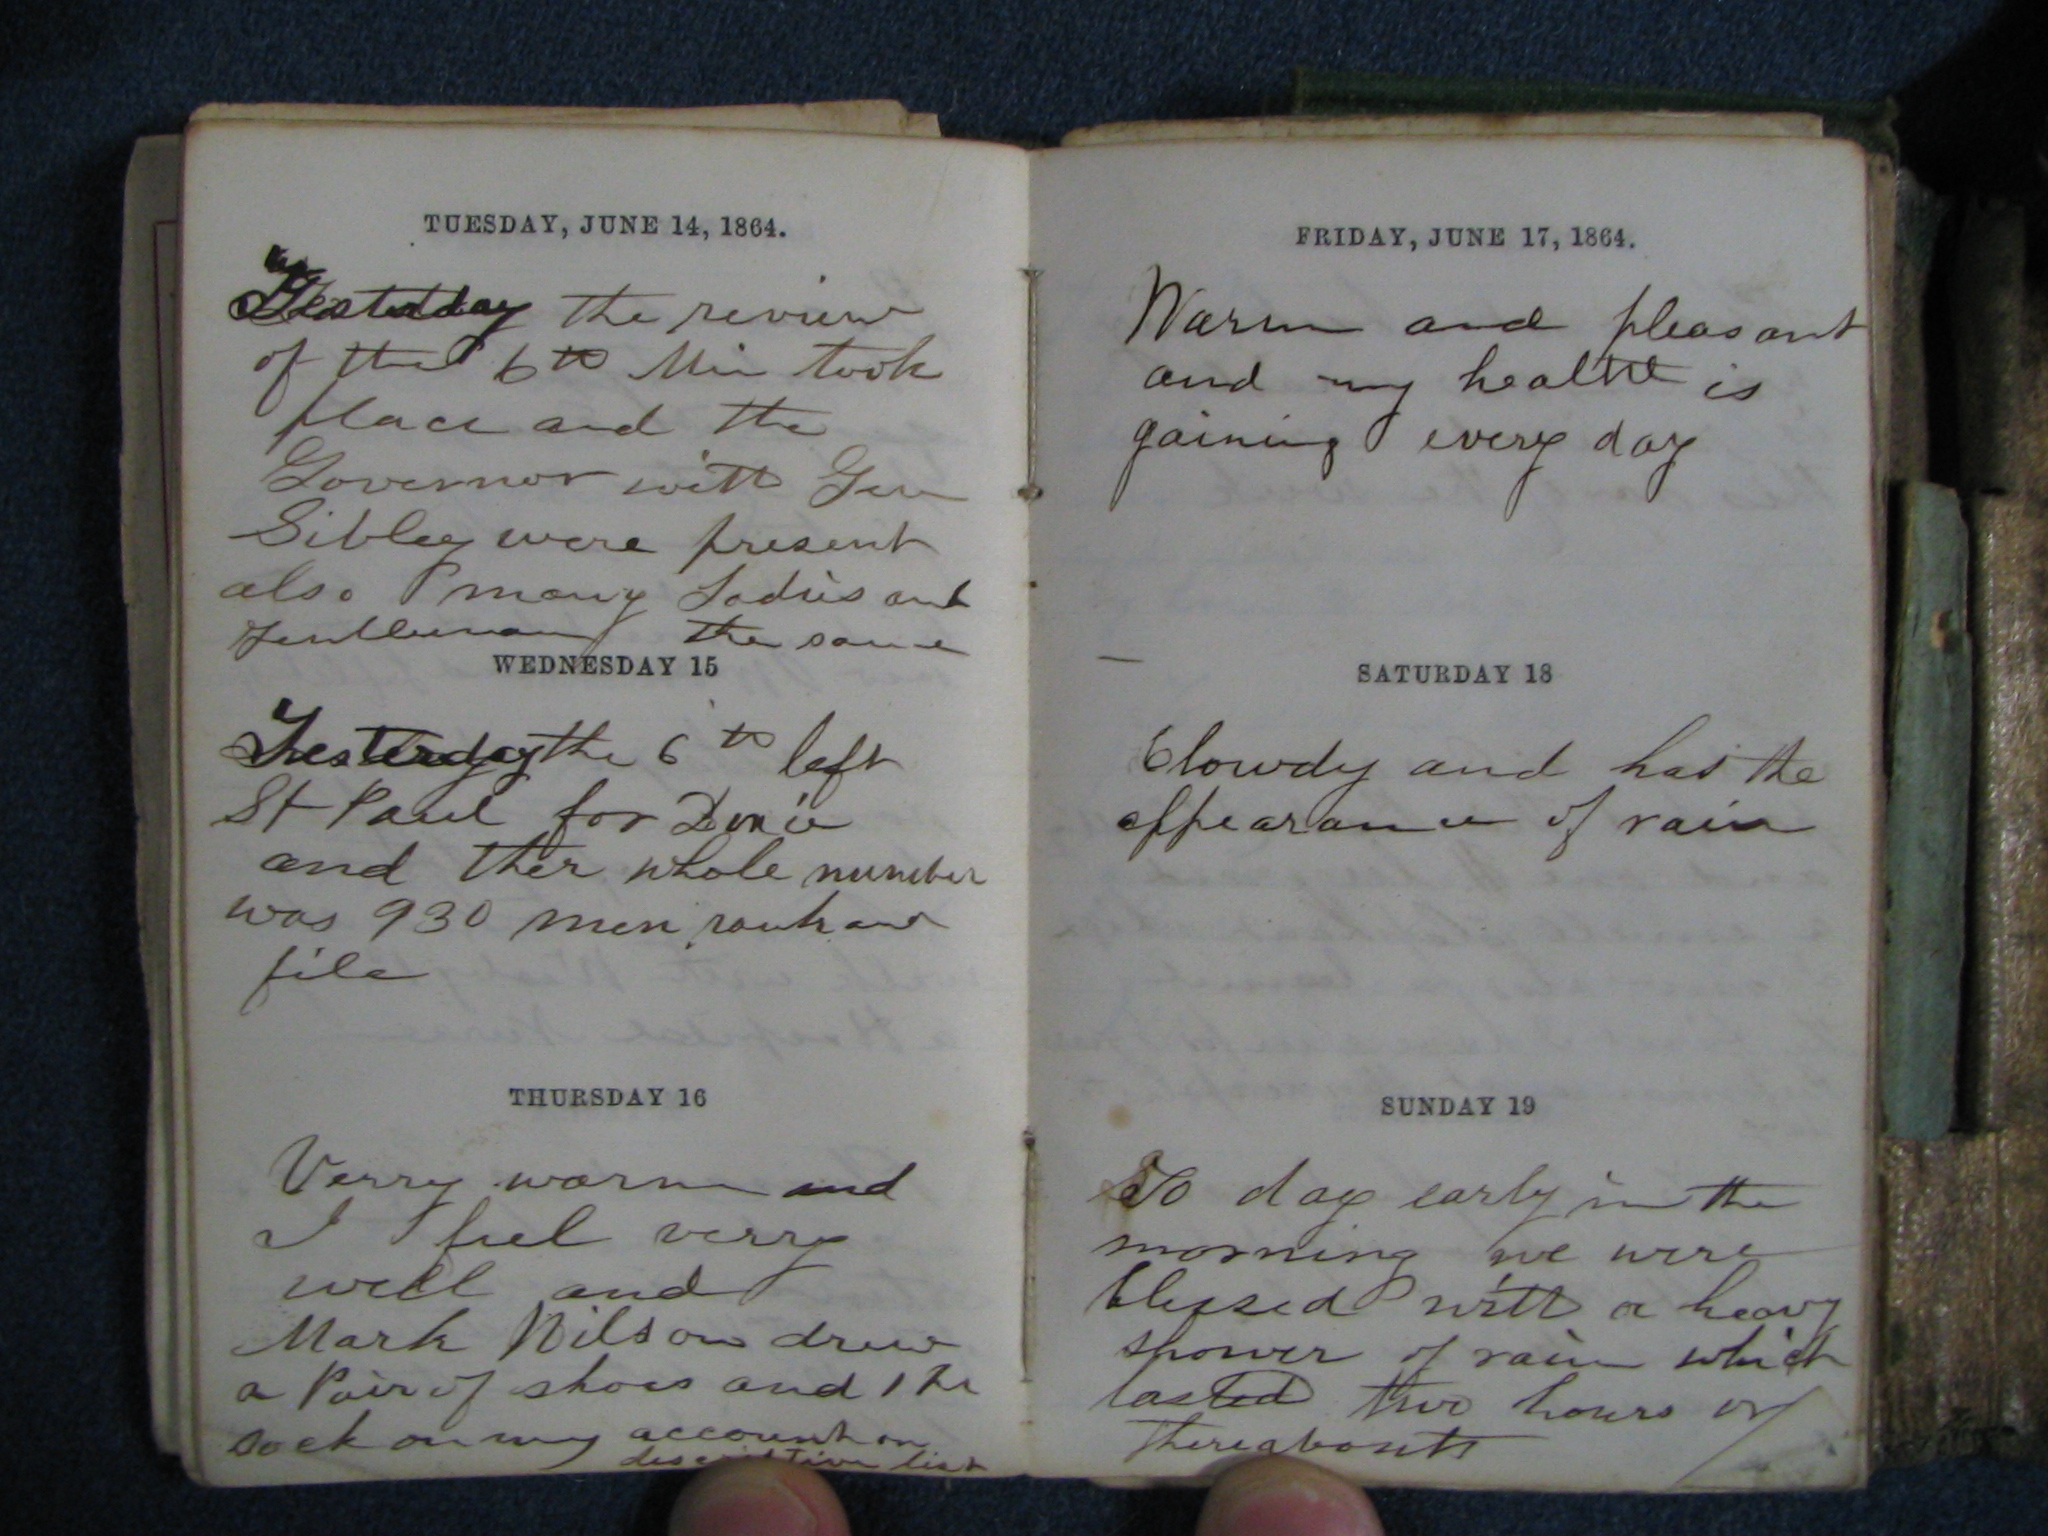 TUESDAY, JUNE 14, 1864.
Yesterday the review
of the 6th Min took
place and the
Governor with Gen
Sibley were present
also many Ladies and
Gentleman the same
WEDNESDAY 15
Yesterday the 6th left
St Paul for Dixie
and ther whole number
was 930 men rank and
file
THURSDAY 16
Verry warm and
I feel verry
well and
Mark Wilson drew
a Pair of shoes and 1 Pr
sock on my account on
descriptive list
FRIDAY, JUNE 17, 1864.
Warm and pleasant
and my health is
gaining every day
SATURDAY 18
Clowdy and has the
appearance of rain
SUNDAY 19
To day early in the
morning we were
blessed with a heavy
shower of rain which
lasted two hours or
thereabouts